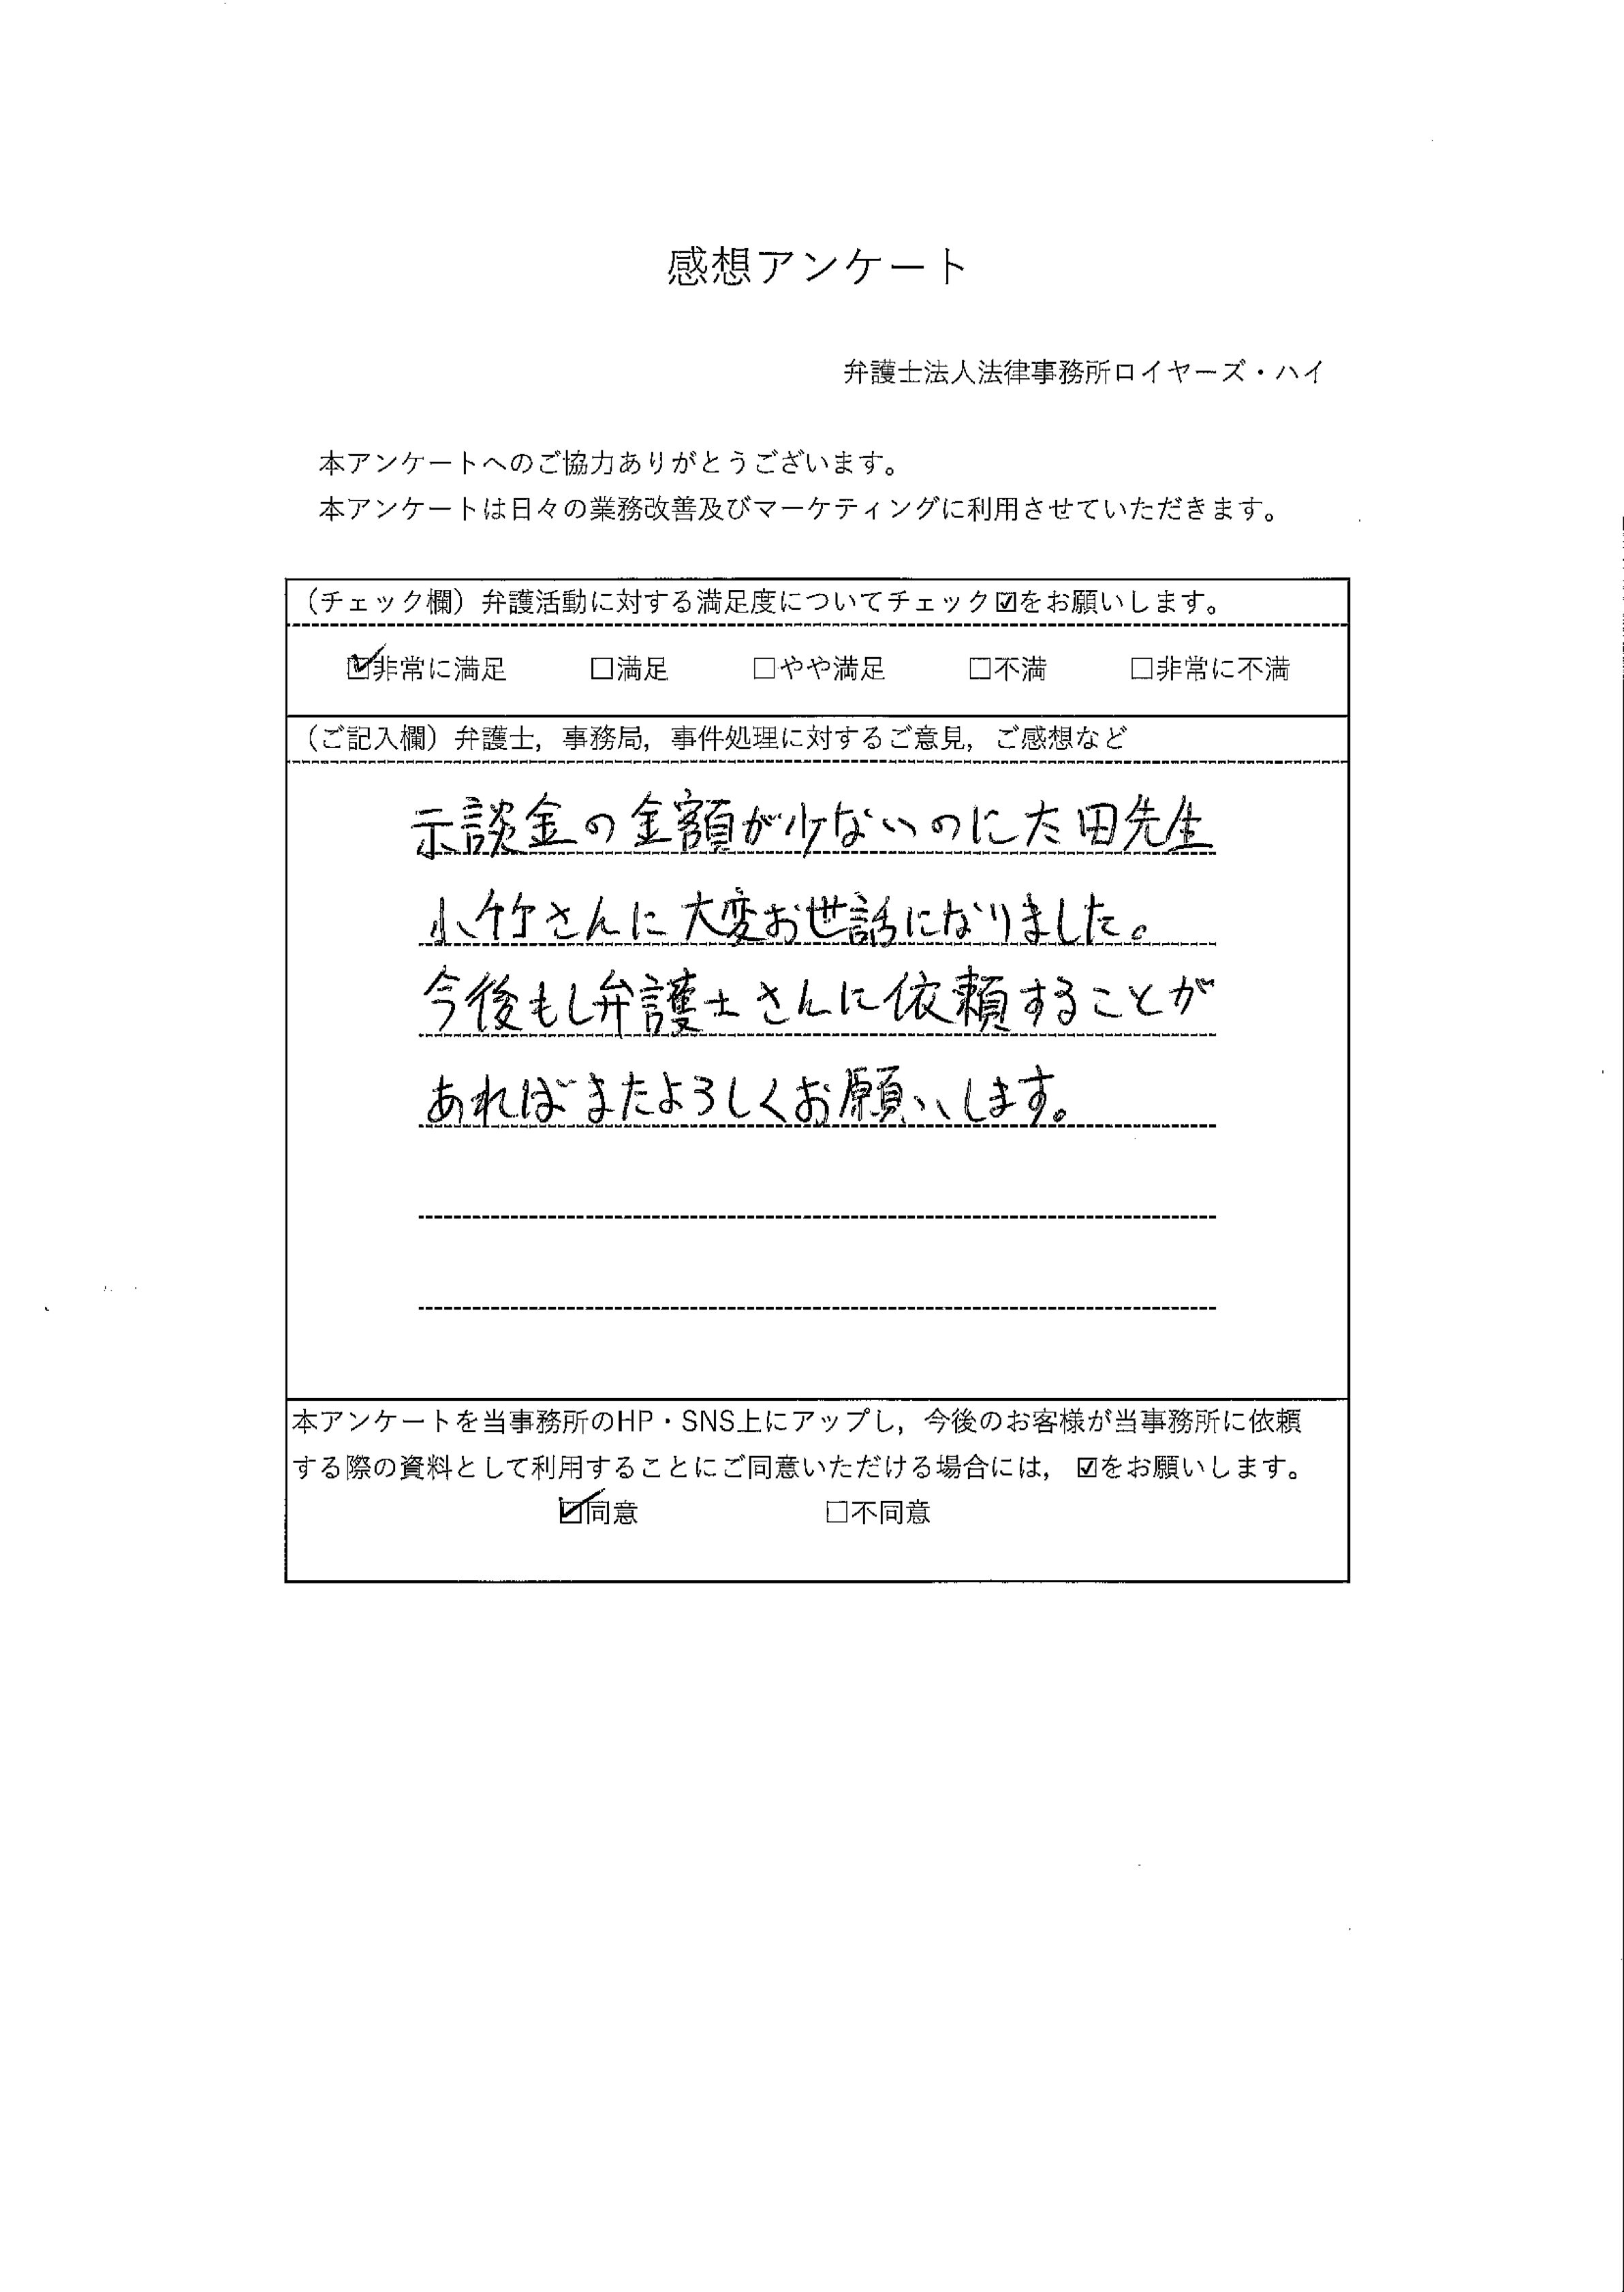 感想アンケート
弁護士法人法律事務所ロイヤーズ・ハイ
本アンケートへのご協力ありがとうございます。
本アンケートは日々の業務改善及びマーケティングに利用させていただきます。
（チェック欄）弁護活動に対する満足度についてチェック☑をお願いします。
☑非常に満足 □満足 □やや満足 □不満 □非常に不満
（ご記入欄）弁護士，事務局，事件処理に対するご意見，ご感想など
示談金の金額が少ないのに太田先生
小竹さんに大変お世話になりました。
今後もし弁護士さんに依頼することが
あればまたよろしくお願いします。
本アンケートを当事務所のHP・SNS上にアップし，今後のお客様が当事務所に依頼
する際の資料として利用することにご同意いただける場合には，☑をお願いします。
☑同意 □不同意